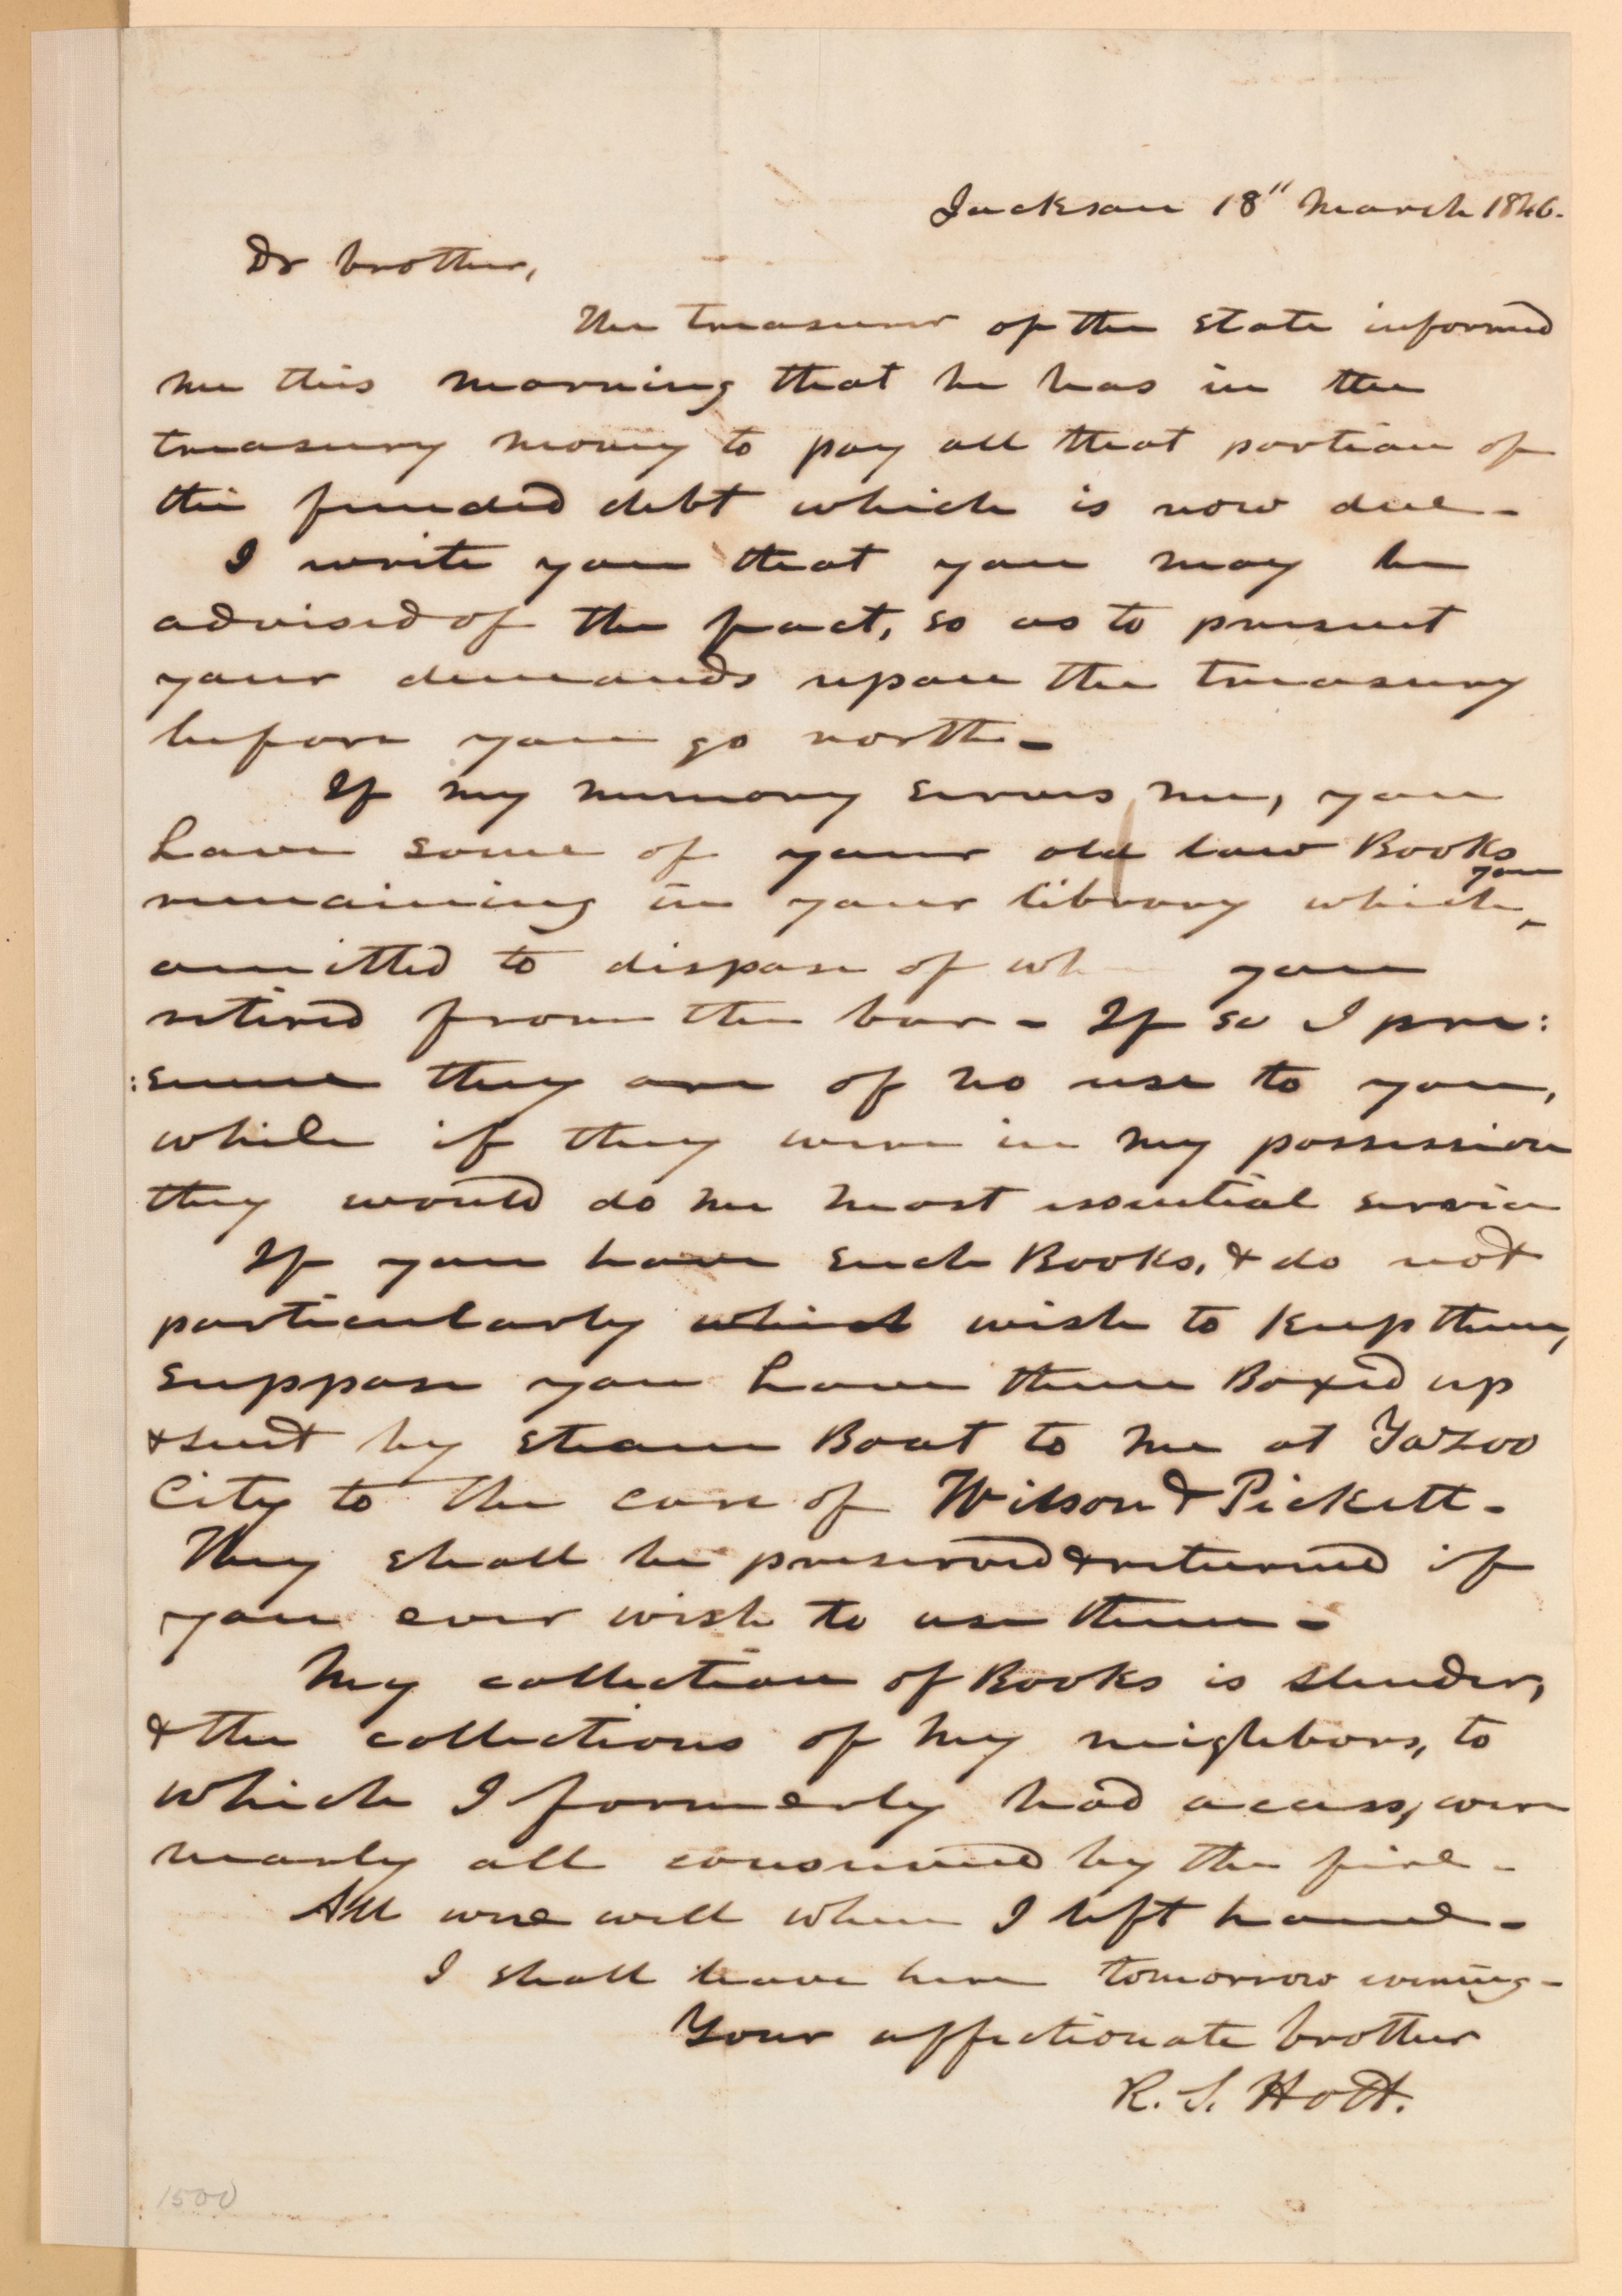 Jackson 18" March 1846.
Dr brother,
The treasurer of the state informed
me this morning that he has in the
treasury money to pay all that portion of
the funded debt which is now due -
I write you that you may be
advised of the fact, so as to present
your demands upon the treasury
before you go north -
If my memory serves me, you
have some of your old law Books
you
remaining in your library which ‸
ommitted to dispose of wh you
retired from the bar - If so I pre:
:sume they are of no use to you,
while if they were in my possession
they would do me most essential service
If you have such Books, & do not
particularly which wish to keep them,
suppose you have them Boxed up
& sent by steam Boat to me at Yazoo
City to the care of Wilson & Pickett -
They shall be preserved & returned if
you ever wish to use them -
My collection of Books is slender,
& the collections of my neighbors, to
which I formerly had access, were
nearly all consumed by the fire -
All were well when I left home -
I shall leave here tomorrow evening -
Your affectionate brother
R. S. Holt.
1500